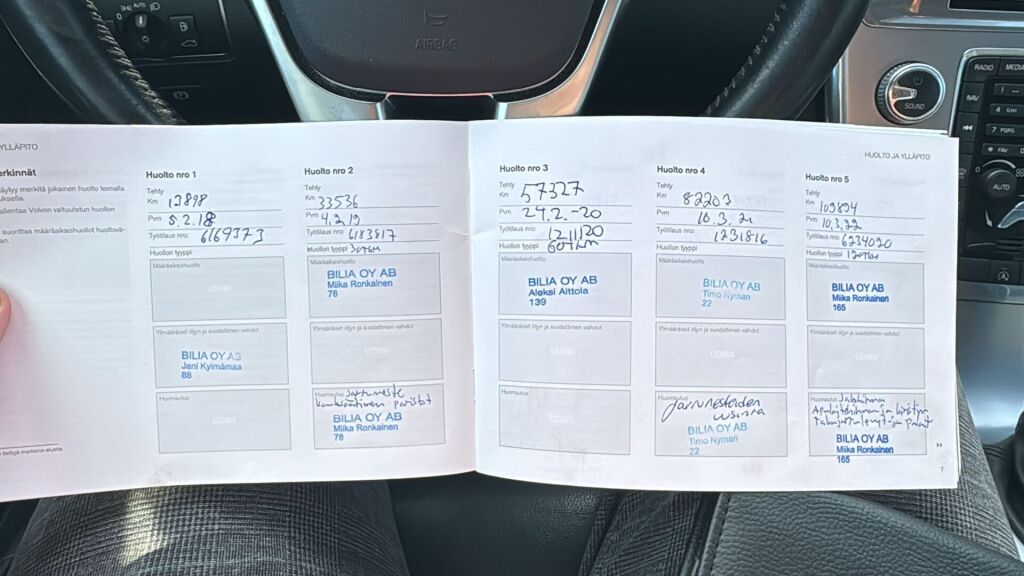 AUTO
AIRBAG
RADIO
MEDIA
NAV
SOUND
4 GHI
7 PQRS
FAV
AUTO
YLLÄPITO
HUOLTO JA YLLÄPITO
erkinnät
äytyy merkitä jokainen huolto leimalla
uksella.
allentaa Volvon valtuutetun huollon
suorittaa määräaikaishuollot huoltovä-
an.
Huolto nro 1
Tehty
Km 13898
Pvm 5.2.18
Työtilaus nro: 6169373
Huollon tyyppi
Määräaikaishuolto
LEIMA
Ylimääräiset öljyn ja suodattimen vaihdot
BILIA OY AB
Jani Kylmämaa
88
Huomautus
LEIMA
Huolto nro 2
Tehty
Km 33536
Pvm 4.2.19
Työtilaus nro: 6183517
Huollon tyyppi 30Tkm
Määräaikaishuolto
BILIA OY AB
Miika Ronkainen
78
Ylimääräiset öljyn ja suodattimen vaihdot
LEIMA
Huomautus Jarruneste
paristot
BILIA OY AB
Miika Ronkainen
78
Huolto nro 3
Tehty
Km 57327
Pvm 24.2.-20
Työtilaus nro: 1211120
Huollon tyyppi 60Tkm
Määräaikaishuolto
BILIA OY AB
Aleksi Aittola
139
Ylimääräiset öljyn ja suodattimen vaihdot
LEIMA
Huomautus
LEIMA
Huolto nro 4
Tehty
Km 82203
Pvm 10.3.21
Työtilaus nro: 1231816
Huollon tyyppi
Määräaikaishuolto
BILIA OY AB
Timo Nyman
22
Ylimääräiset öljyn ja suodattimen vaihdot
LEIMA
Huomautus
Jarrunesteiden
uusinta
BILIA OY AB
Timo Nyman
22
Huolto nro 5
Tehty
Km 109894
Pvm 10.3.22
Työtilaus nro: 6234020
Huollon tyyppi 120Tkm
Määräaikaishuolto
BILIA OY AB
Miika Ronkainen
165
Ylimääräiset öljyn ja suodattimen vaihdot
LEIMA
Huomautus
BILIA OY AB
Miika Ronkainen
165
7